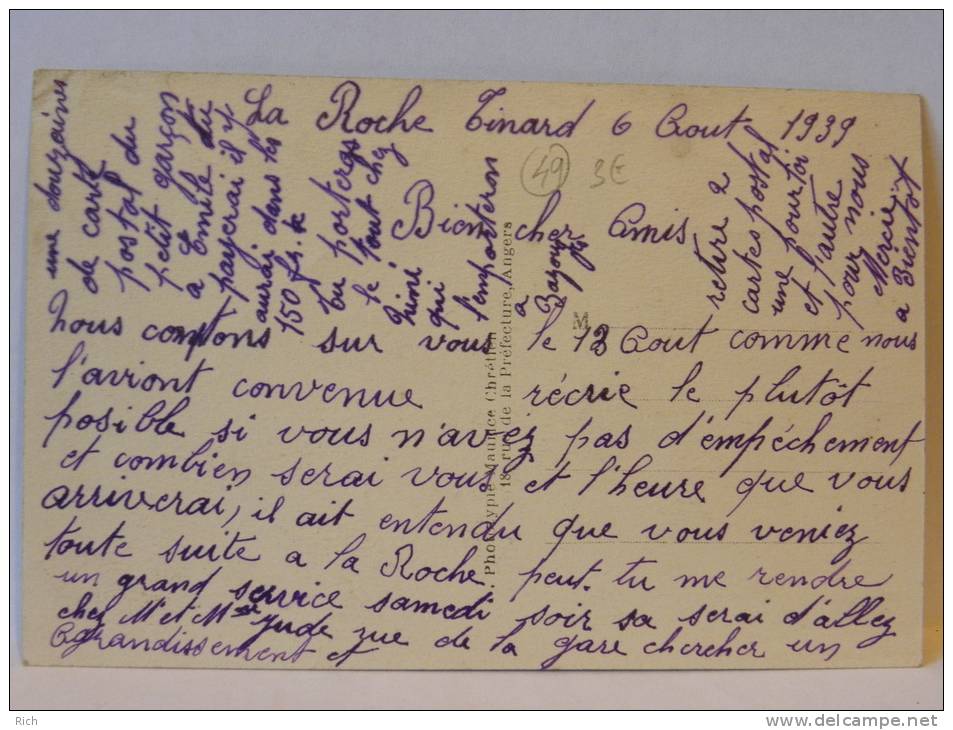 La Roche Tinard 6 Aout 1939
49
3E
Bien cher Amis
nous comptons sur vous le 12 Aout comme nous
l'avront convenue récrie le plutôt
posible si vous n'avez pas d'empéchement
et combien serai vous et l'heure que vous
arriverai, il ait entendu que vous veniez
toute suite a la Roche. peut. tu me rendre
un grand service samedi soir sa serai d'allez
chez Mr et Mme Jude rue de la gare chercher un
Agrandissement et
une douzaines
de carte
postal du
petit garçon
a Emile tu
payerai il y
aurai dans les
150 frs. te
tu porteras
le tout chez
Nini
qui
l'emportern
a
retire 2
cartes postal
une pour toi
et l'autre
pour nous
Mercie
a Bientot
M
Phototypie Maurice Chrétien
18, rue de la Préfecture, Angers
Rich
www.delcampe.net